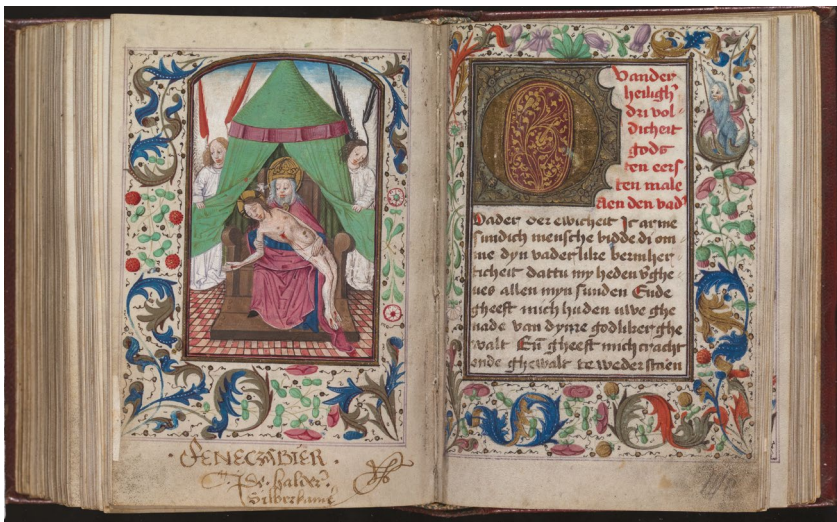 Vander
heiligh
dri vol
dicheit
gods
ten eers
ten male
Aen den vad
Vader der ewicheit Ic arme
sundich mensche bidde di om
me dyn vaderlike bermher
ticheit dattu my heden v̉ghe
ues allen myn sunden Ende
gheeft mich huden uwe ghe
nade van dynre godliker ghe
walt Eñ gheeft mich cracht
ende ghewalt te wederstaen